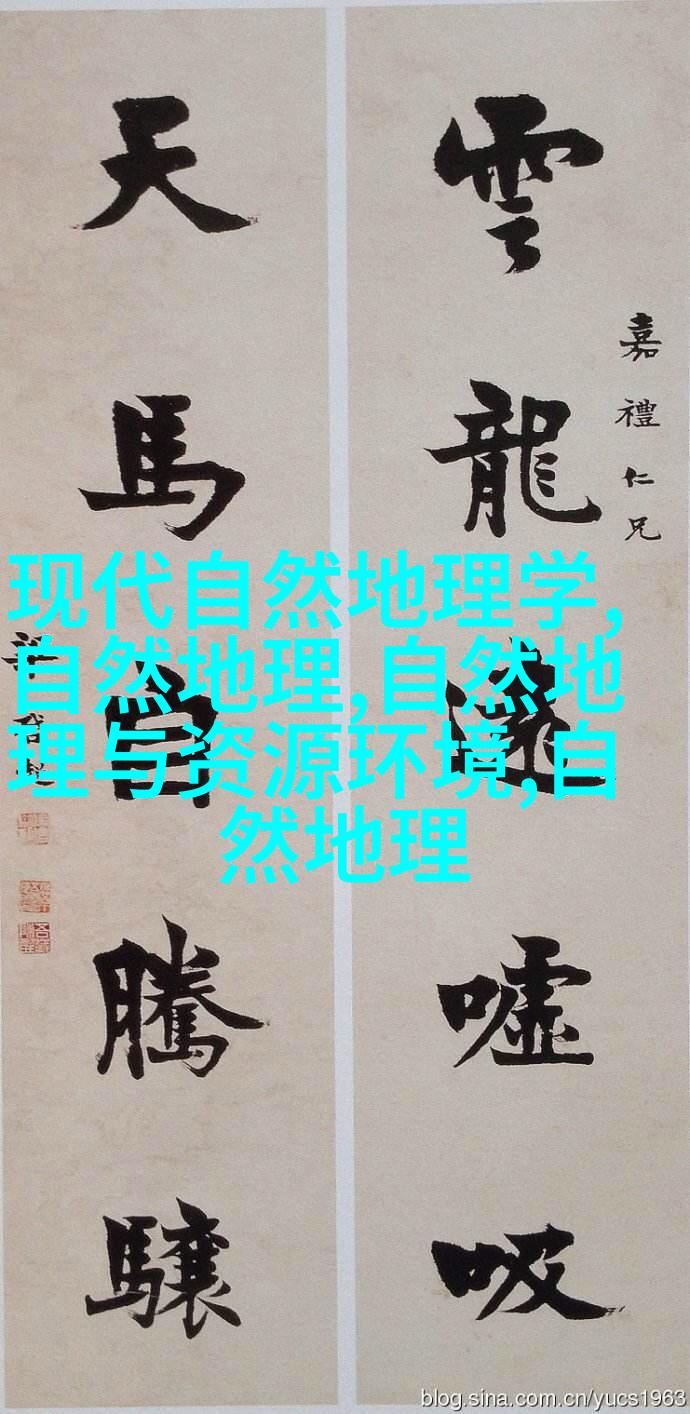 雲龍遠噓吸
嘉禮仁兄
天馬自騰驤
梁啓超
现代自然地理学,
自然地理,自然地
理与资源环境,自
然地理
blog.sina.com.cn/yucs1963